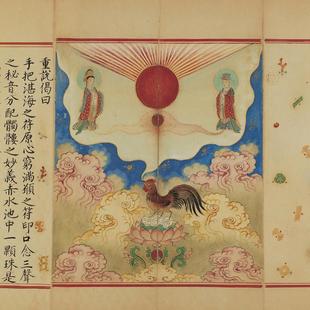 重説偈曰
手把湛海之荷原心窮滿頚之符印口念三聲
之秘音分配髑髏之妙義赤水池中一顆珠是